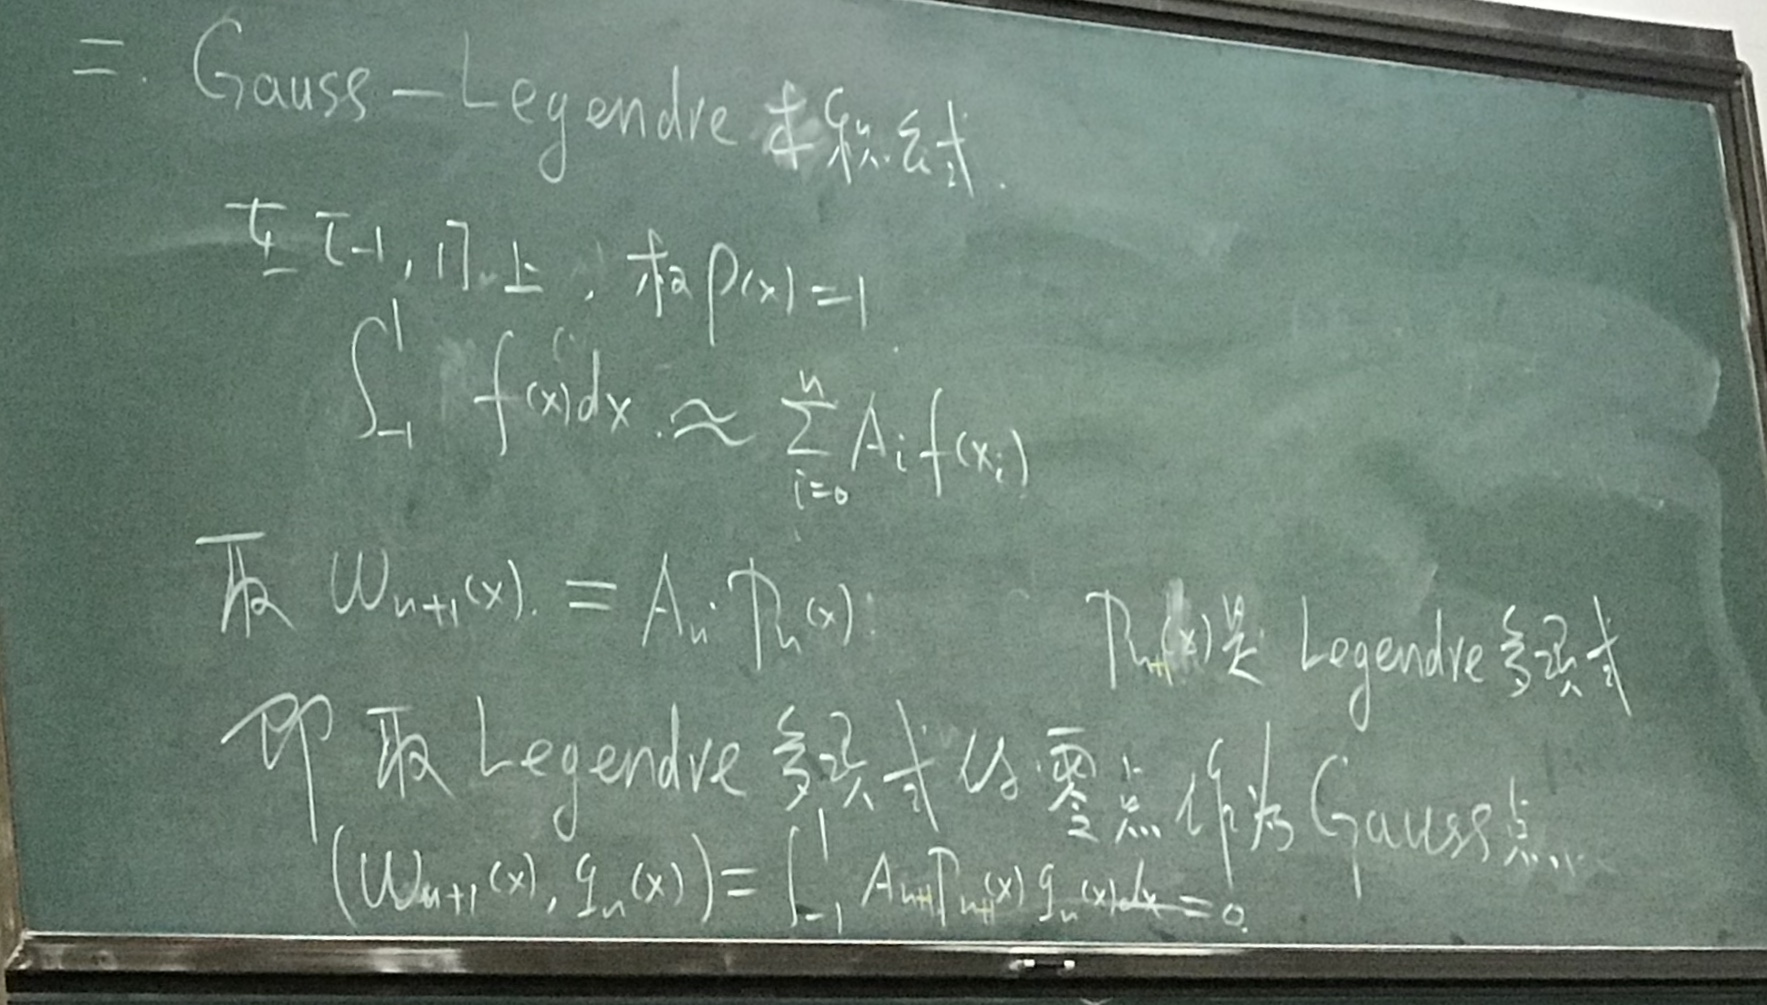 二. Gauss-Legendre 求积公式.
在[-1,1]上, 权ρ(x)=1
∫_{-1}^{1} f(x)dx ≈ ∑_{i=0}^{n} A_i f(x_i)
取 ω_{n+1}(x) = A_n · P_n(x) P_{n+1}(x)是 Legendre 多项式
即 取 Legendre 多项式的零点作为 Gauss点
(ω_{n+1}(x), q_n(x)) = ∫_{-1}^{1} A_{n+1} P_{n+1}(x) q_n(x)dx = 0.